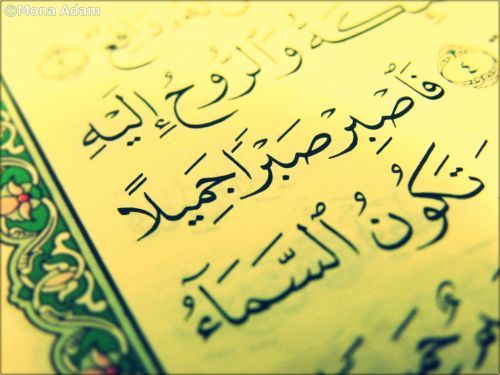 ©Mona Adam
دَافِعٌ
وَٱلرُّوحُ إِلَيْهِ
٤ فَٱصْبِرْ صَبْرًا جَمِيلًا
تَكُونُ ٱلسَّمَآءُ